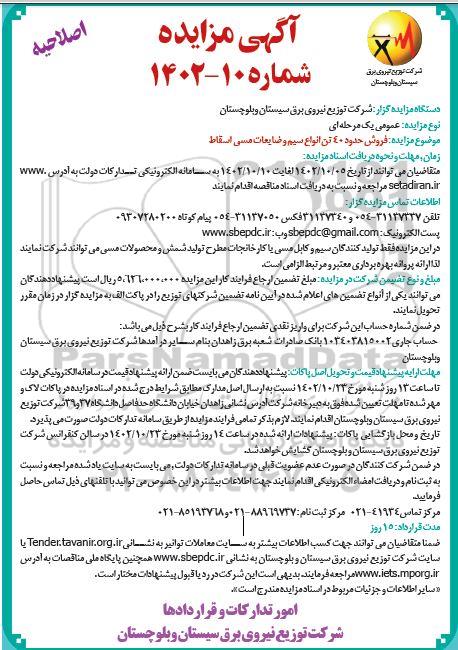 اصلاحیه
آگهی مزایده
شماره ۱۰-۱۴۰۲
شرکت توزیع نیروی برق
سیستان وبلوچستان
دستگاه مزایده گزار: شرکت توزیع نیروی برق سیستان وبلوچستان
نوع مزایده: عمومی یک مرحله ای
موضوع مزایده: فروش حدود ۴۰ تن انواع سیم و ضایعات مسی اسقاط
زمان، مهلت و نحوه دریافت اسناد مزایده:
متقاضیان می توانند از تاریخ ۱۴۰۲/۱۰/۰۵ لغایت ۱۴۰۲/۱۰/۱۰ به سامانه الکترونیکی تدارکات دولت به آدرس www.
setadiran.ir مراجعه و نسبت به دریافت اسناد مناقصه اقدام نمایند
اطلاعات تماس مزایده گزار:
تلفن ۳۱۱۳۷۳۳۷-۰۵۴ و ۳۱۱۳۷۳۴۰ فکس ۳۱۱۳۷۰۵۰-۰۵۴ پیام کوتاه ۰۹۳۰۷۲۸۰۲۰۰
پست الکترونیک: sbepdc@gmail.com وب: www.sbepdc.ir
در این مزایده فقط تولید کنندگان سیم و کابل مسی یا کارخانجات مطرح تولید شمش و محصولات مسی می توانند شرکت نمایند
لذا ارائه پروانه بهره برداری معتبر و مرتبط الزامی است.
مبلغ و نوع تضمین شرکت در مزایده: مبلغ تضمین ارجاع فرایند کار این مزایده ۵,۶۲۶,۰۰۰,۰۰۰ ریال است پیشنهاد دهندگان
می توانند یکی از انواع تضمین های اعلام شده در آیین نامه تضمین شرکتهای توزیع را در پاکت الف به مزایده گزار در زمان مقرر
تحویل نمایند.
در ضمن شماره حساب این شرکت برای واریز نقدی تضمین ارجاع فرایند کار بشرح ذیل می باشد:
حساب جاری ۰۱۰۳۴۰۳۸۱۵۰۰۲ بانک صادرات شعبه برق زاهدان بنام سایر درآمدها شرکت توزیع نیروی برق سیستان
وبلوچستان
مهلت ارایه پیشنهاد قیمت و تحویل اصل پاکات: پیشنهاد دهندگان می بایست ضمن ارائه پیشنهاد قیمت در سامانه الکترونیکی دولت
تا ساعت ۱۳ روز شنبه مورخ ۱۴۰۲/۱۰/۲۳ نسبت به ارسال اصل مدارک مطابق شرایط درج شده در اسناد مزایده در پاکات لاک و
مهر شده تا مهلت تعیین شده فوق به دبیرخانه شرکت آدرس نشانی زاهدان خیابان دانشگاه حد فاصل دانشگاه ۳۷ و ۳۹ شرکت توزیع
نیروی برق سیستان وبلوچستان اقدام نمایند. لازم بذکر تمامی فرایند مزایده از طریق سامانه تدارکات دولت صورت می پذیرد.
تاریخ و محل بازگشایی پاکات: پیشنهادات ارائه شده در ساعت ۱۴ روز شنبه مورخ ۱۴۰۲/۱۰/۲۳ در سالن کنفرانس شرکت
توزیع نیروی برق سیستان وبلوچستان گشایش خواهد شد.
در ضمن شرکت کنندگان در صورت عدم عضویت قبلی در سامانه تدارکات دولت، می بایست به سایت یاد شده مراجعه و نسبت
به ثبت نام و دریافت امضاء الکترونیکی اقدام نمایند جهت اطلاعات بیشتر در این خصوص می توانید با تلفنهای ذیل تماس حاصل
فرمایید.
مرکز تماس ۴۱۹۳۴-۰۲۱ مرکز ثبت نام: ۸۸۹۶۹۷۳۷-۰۲۱ و ۸۵۱۹۳۷۶۸-۰۲۱
مدت قرارداد: ۱۵ روز
ضمنا متقاضیان می توانند جهت کسب اطلاعات بیشتر به سایت معاملات توانیر به نشانی Tender.tavanir.org.ir یا
سایت شرکت توزیع نیروی برق سیستان و بلوچستان به نشانی www.sbepdc.ir همچنین پایگاه ملی مناقصات به آدرس
www.iets.mporg.ir مراجعه فرمایند. بدیهی است این شرکت در رد یا قبول پیشنهادات مختار است.
«سایر اطلاعات و جزئیات مربوط در اسناد مزایده مندرج است».
امور تدارکات و قراردادها
شرکت توزیع نیروی برق سیستان وبلوچستان